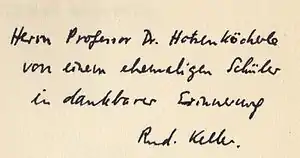 Herrn Professor Dr. Hotzenköcherle
von einem ehemaligen Schüler
in dankbarer Erinnerung
Rud. Keller.